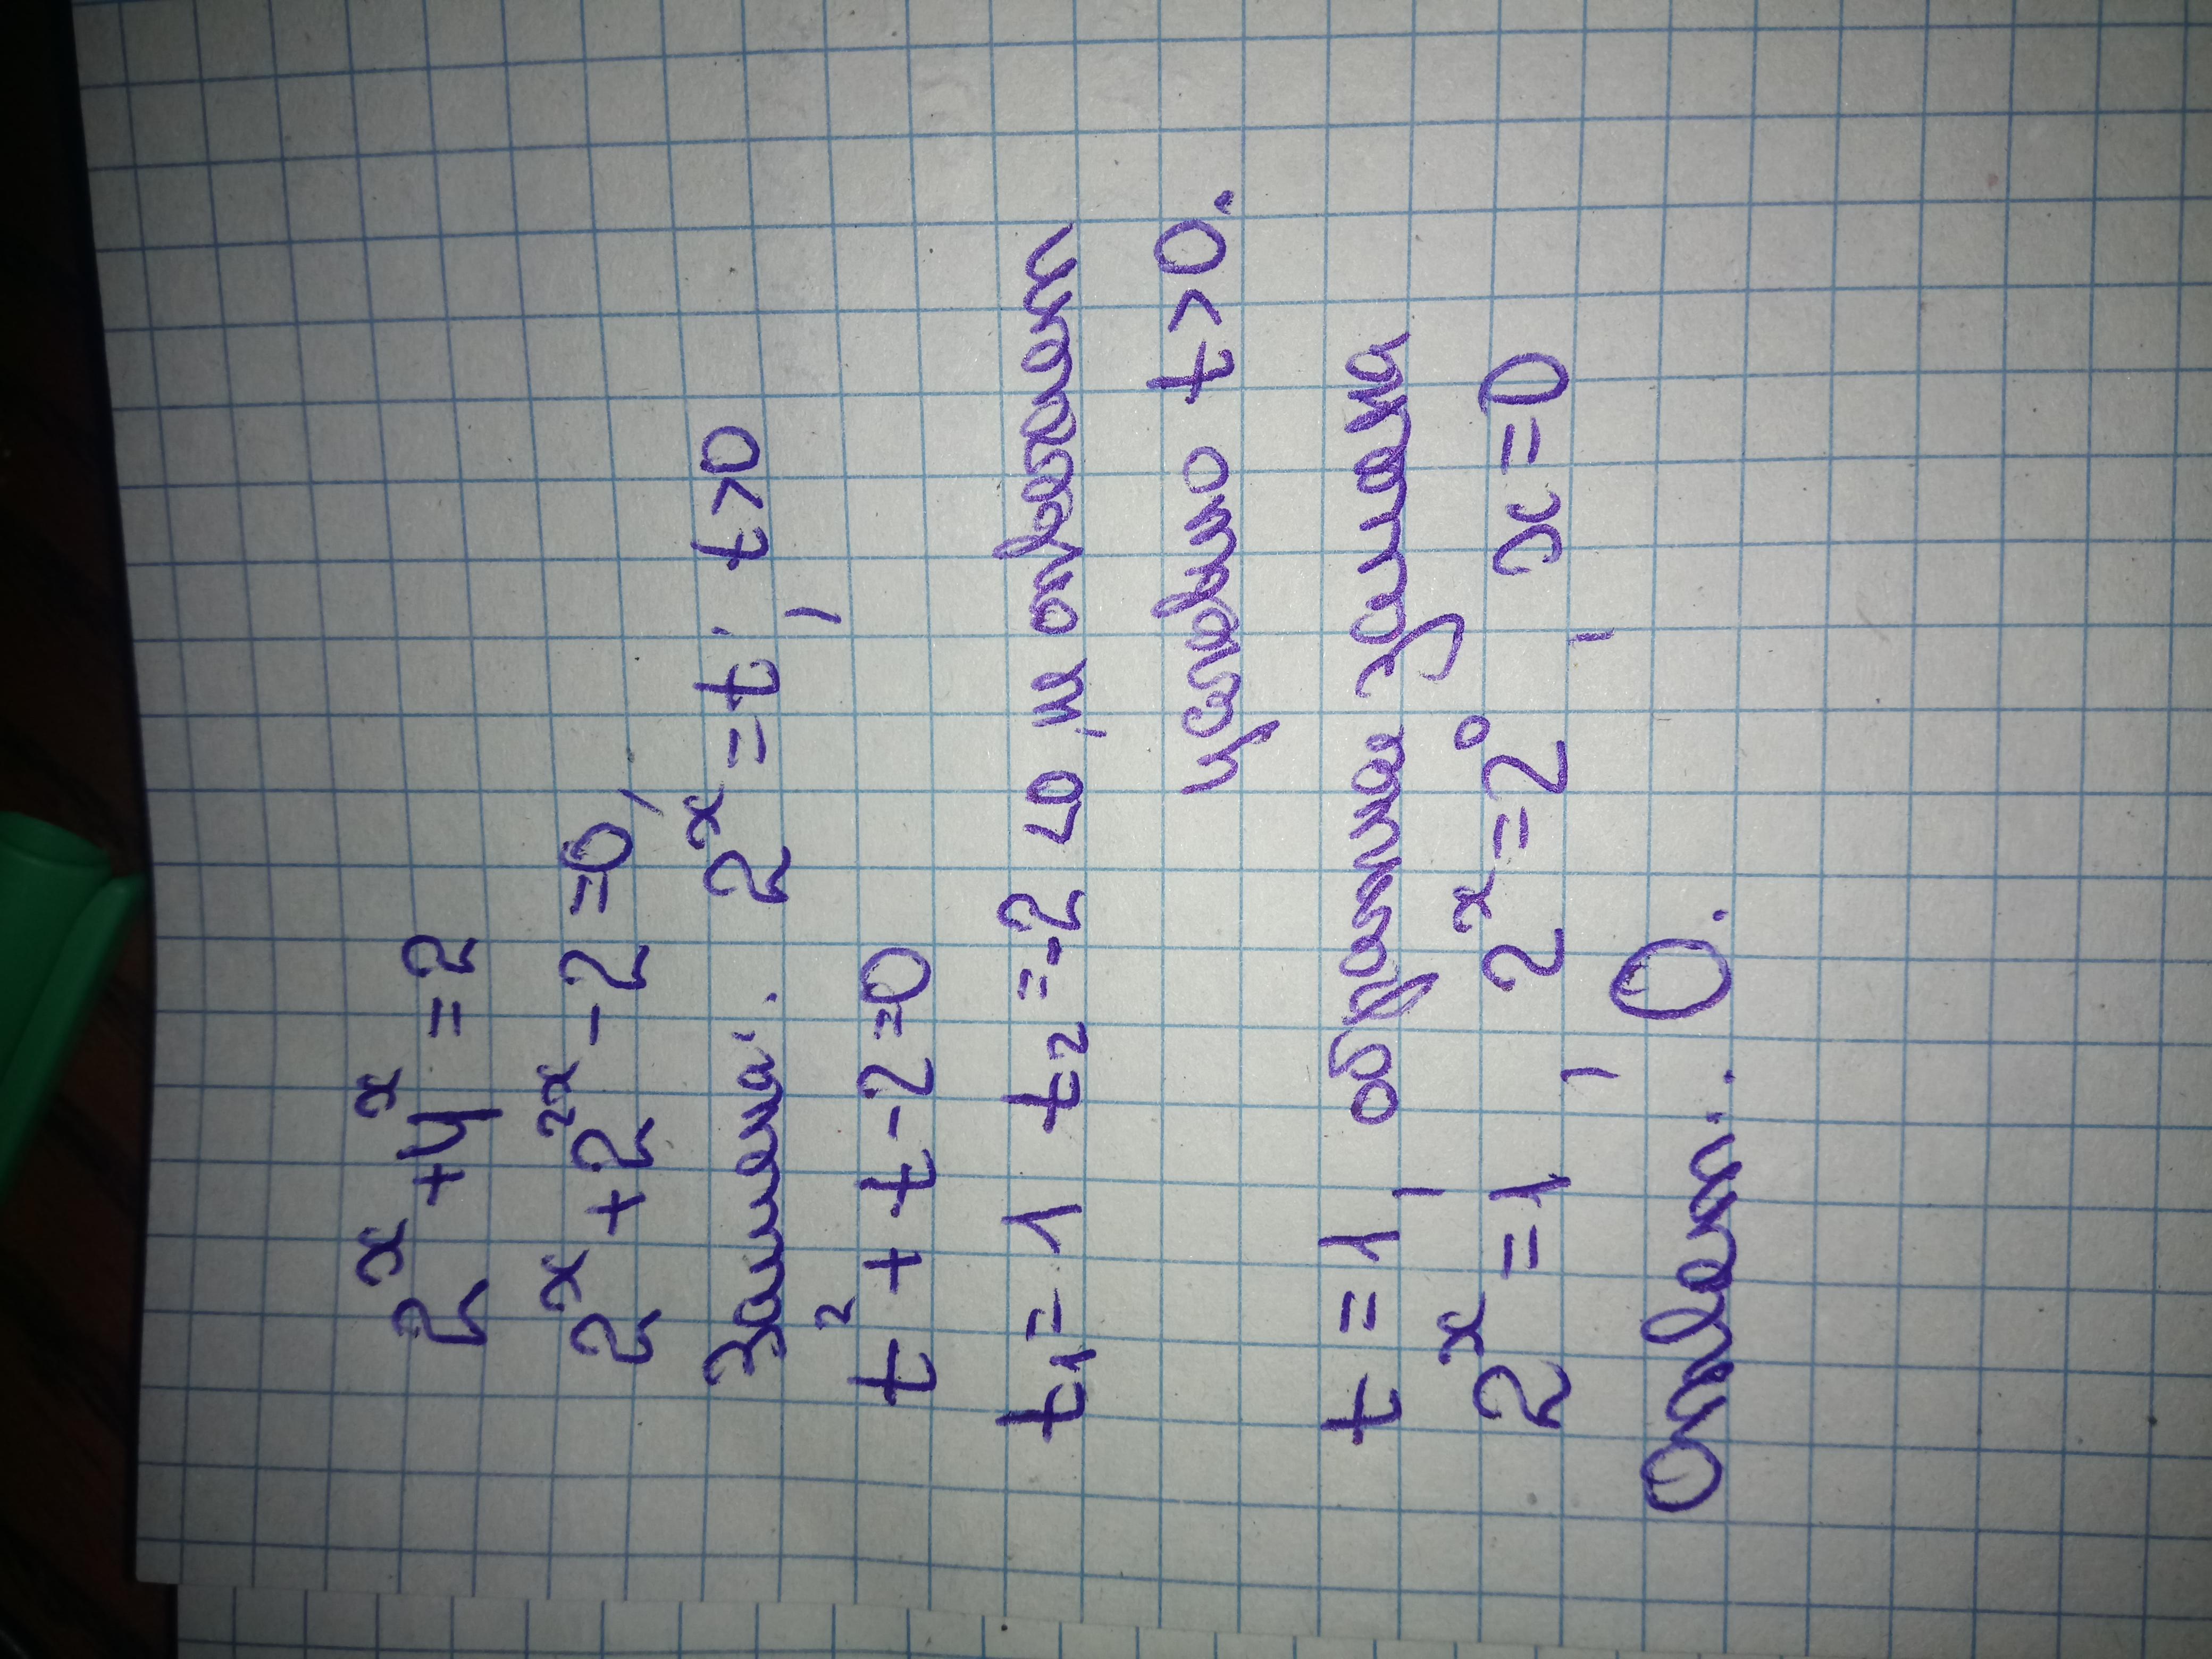 2ˣ+4ˣ=2
2ˣ+2²ˣ-2=0,
Замена: 2ˣ=t, t>0
t²+t-2=0
t₁=1 t₂=-2<0, не
t>0.
t=1, обратная замена
2ˣ=1, 2ˣ=2⁰, x=0
Ответ: 0.